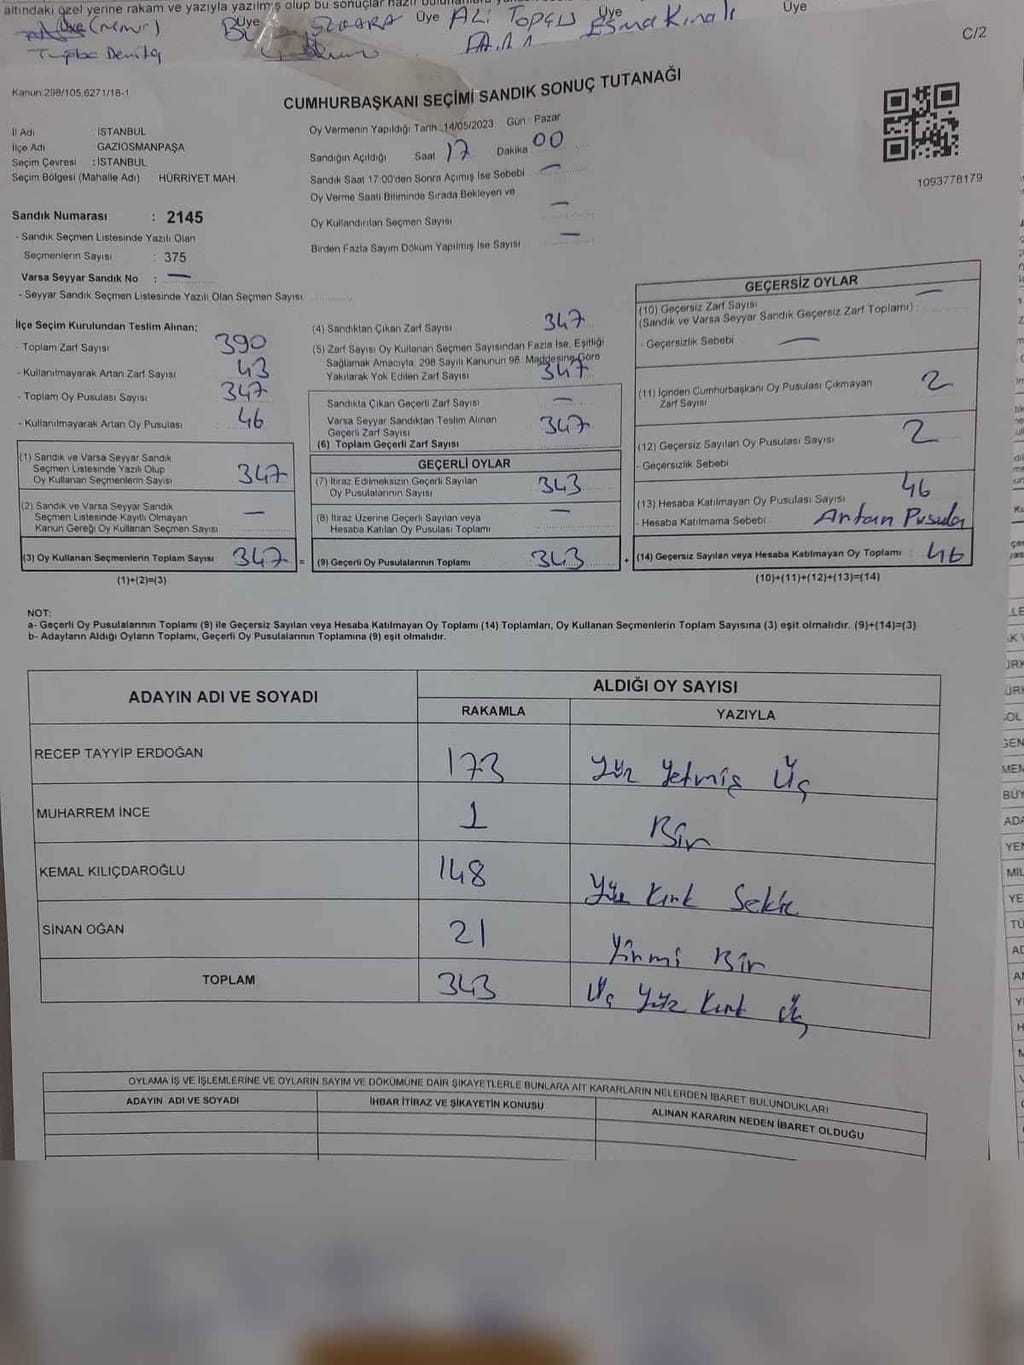 altındaki özel yerine rakam ve yazıyla yazılmış olup bu sonuçlar hazır bulunanlara
Üye (memur) Üye Üye ALİ TOPÇU Üye Esma Kınalı Üye
Tuğba
C/2
Kanun:298/105,6271/18-1
CUMHURBAŞKANI SEÇİMİ SANDIK SONUÇ TUTANAĞI
İl Adı : İSTANBUL
İlçe Adı : GAZİOSMANPAŞA
Seçim Çevresi : İSTANBUL
Seçim Bölgesi (Mahalle Adı) HÜRRİYET MAH
Oy Vermenin Yapıldığı Tarih :14/05/2023 Gün : Pazar
Sandığın Açıldığı Saat 17 Dakika 00
Sandık Saat 17:00'den Sonra Açımış İse Sebebi —
Oy Verme Saati Bitiminde Sırada Bekleyen ve
Oy Kullandırılan Seçmen Sayısı —
Birden Fazla Sayım Döküm Yapılmış İse Sayısı —
1093778179
Sandık Numarası : 2145
- Sandık Seçmen Listesinde Yazılı Olan
Seçmenlerin Sayısı : 375
Varsa Seyyar Sandık No : —
- Seyyar Sandık Seçmen Listesinde Yazılı Olan Seçmen Sayısı
İlçe Seçim Kurulundan Teslim Alınan;
- Toplam Zarf Sayısı 390
- Kullanılmayarak Artan Zarf Sayısı 43
- Toplam Oy Pusulası Sayısı 347
- Kullanılmayarak Artan Oy Pusulası 46
(1) Sandık ve Varsa Seyyar Sandık
Seçmen Listesinde Yazılı Olup
Oy Kullanan Seçmenlerin Sayısı 347
(2) Sandık ve Varsa Seyyar Sandık
Seçmen Listesinde Kayıtlı Olmayan
Kanun Gereği Oy Kullanan Seçmen Sayısı —
(3) Oy Kullanan Seçmenlerin Toplam Sayısı 347 =
(1)+(2)=(3)
(4) Sandıktan Çıkan Zarf Sayısı 347
(5) Zarf Sayısı Oy Kullanan Seçmen Sayısından Fazla İse, Eşitliği
Sağlamak Amacıyla, 298 Sayılı Kanunun 98. Maddesine Göre
Yakılarak Yok Edilen Zarf Sayısı 347
Sandıkta Çıkan Geçerli Zarf Sayısı —
Varsa Seyyar Sandıktan Teslim Alınan
Geçerli Zarf Sayısı 347
(6) Toplam Geçerli Zarf Sayısı
GEÇERLİ OYLAR
(7) İtiraz Edilmeksizin Geçerli Sayılan
Oy Pusulalarının Sayısı 343
(8) İtiraz Üzerine Geçerli Sayılan veya
Hesaba Katılan Oy Pusulası Toplamı —
(9) Geçerli Oy Pusulalarının Toplamı 343 +
GEÇERSİZ OYLAR
(10) Geçersiz Zarf Sayısı —
(Sandık ve Varsa Seyyar Sandık Geçersiz Zarf Toplamı)
- Geçersizlik Sebebi —
(11) İçinden Cumhurbaşkanı Oy Pusulası Çıkmayan
Zarf Sayısı 2
(12) Geçersiz Sayılan Oy Pusulası Sayısı 2
- Geçersizlik Sebebi
(13) Hesaba Katılmayan Oy Pusulası Sayısı 46
- Hesaba Katılmama Sebebi Artan Pusula
(14) Geçersiz Sayılan veya Hesaba Katılmayan Oy Toplamı 46
(10)+(11)+(12)+(13)=(14)
NOT:
a- Geçerli Oy Pusulalarının Toplamı (9) ile Geçersiz Sayılan veya Hesaba Katılmayan Oy Toplamı (14) Toplamları, Oy Kullanan Seçmenlerin Toplam Sayısına (3) eşit olmalıdır. (9)+(14)=(3)
b- Adayların Aldığı Oyların Toplamı, Geçerli Oy Pusulalarının Toplamına (9) eşit olmalıdır.
ADAYIN ADI VE SOYADI ALDIĞI OY SAYISI
RAKAMLA YAZIYLA
RECEP TAYYİP ERDOĞAN 173 Yüz Yetmiş Üç
MUHARREM İNCE 1 Bir
KEMAL KILIÇDAROĞLU 148 Yüz Kırk Sekiz
SİNAN OĞAN 21 Yirmi Bir
TOPLAM 343 Üç Yüz Kırk Üç
OYLAMA İŞ VE İŞLEMLERİNE VE OYLARIN SAYIM VE DÖKÜMÜNE DAİR ŞİKAYETLERLE BUNLARA AİT KARARLARIN NELERDEN İBARET BULUNDUKLARI
ADAYIN ADI VE SOYADI İHBAR İTİRAZ VE ŞİKAYETİN KONUSU ALINAN KARARIN NEDEN İBARET OLDUĞU